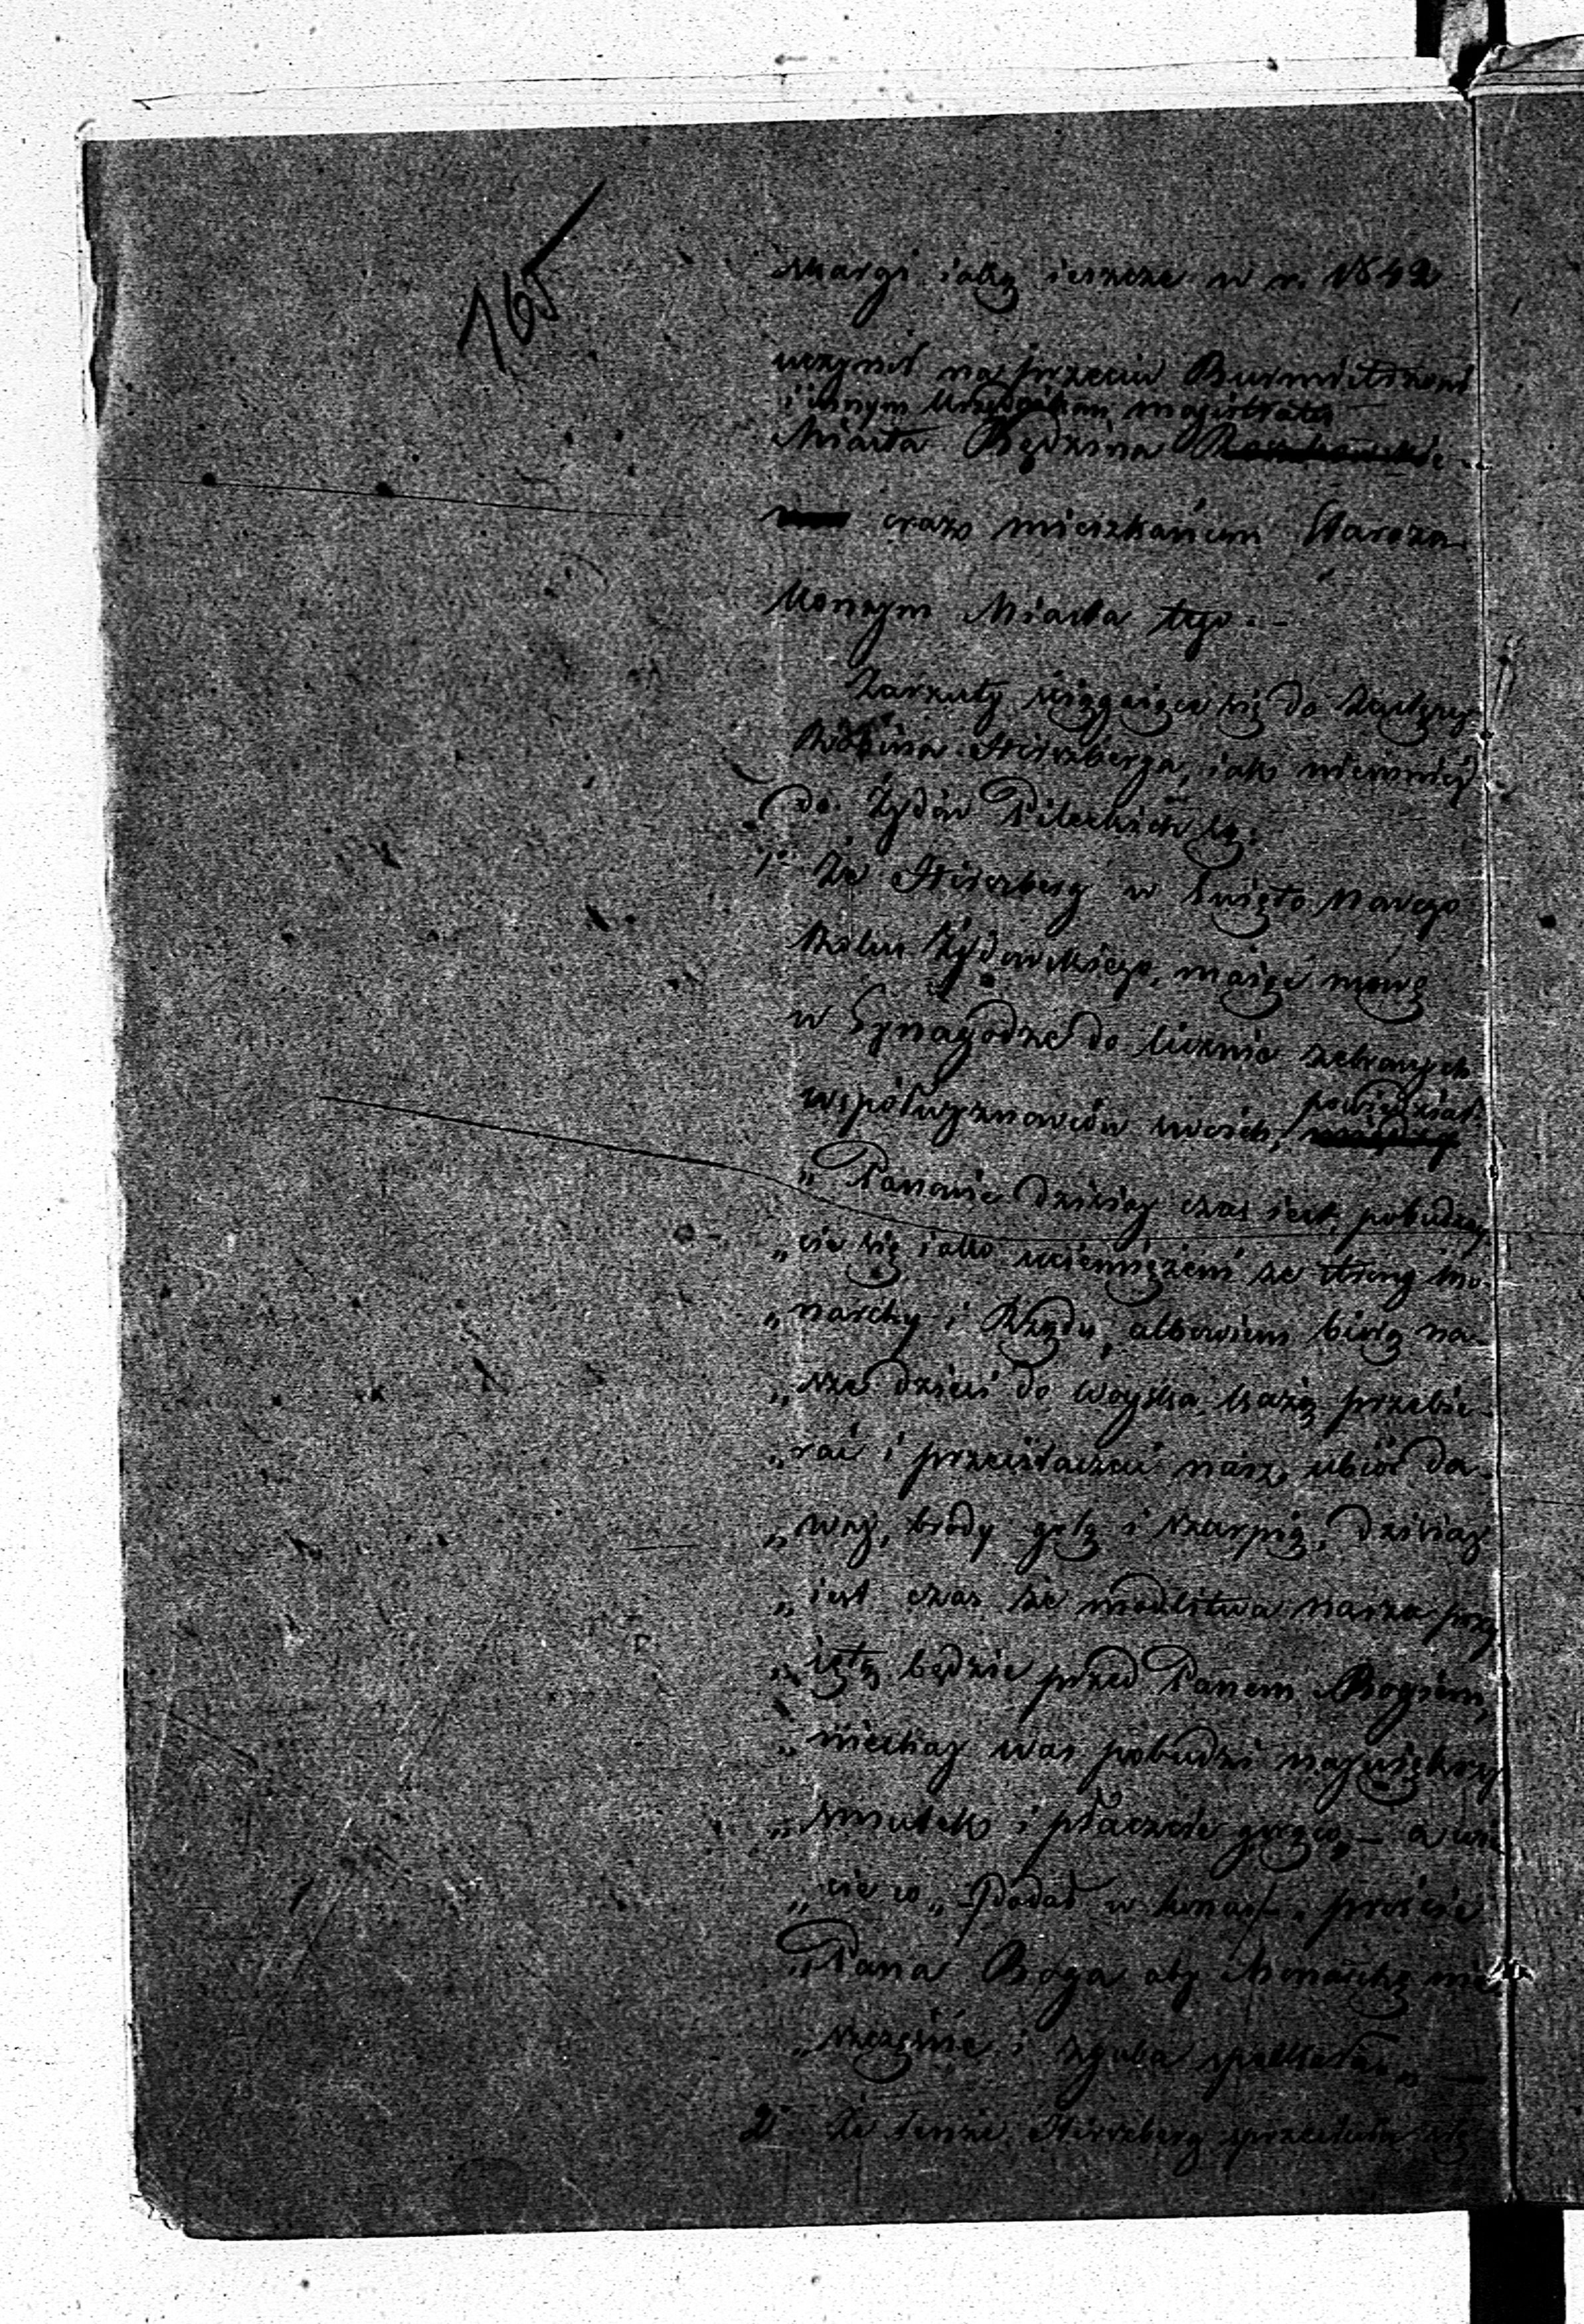 165
skargi iaką ieszcze w r. 1842
uczynił na przeciw Burmistrzowi
i innym Urzędnikom magistratu
Miasta Będzina
oraz mieszkańcom Staroza-
konnym Miasta tego. -
Zarzuty ściągaiące się do
Rabina Herszberga, iako niemniéj
do Żydów Pileckich są:
1° Że Herszberg w Święto Nowego
Roku Żydowskiego, maiąc mowę
w Synagodze do licznie zebranych
współwyznawców swoich, powiedział
„Panowie dzisiay czas iest, pobudzay
„cie się iako uciemiężeni ze strony Mo-
„narchy i Rządu, albowiem biorą na-
„sze dzieci do woyska, każą przebie-
„rać i przeistaczać nasz ubiór da-
„wny, brody golą i szarpią, dzisiay
„iest czas że modlitwa nasza przy
„iętą będzie przed Panem Bogiem,
„niechay was pobudzi naywiększy
„smutek i płaczcie gorzko, — a wie
„cie co „ prościе
„Pana Boga aby Monarchę nie
„szczęście i zguba spotkała„ —
2° Że tenże Herszberg się